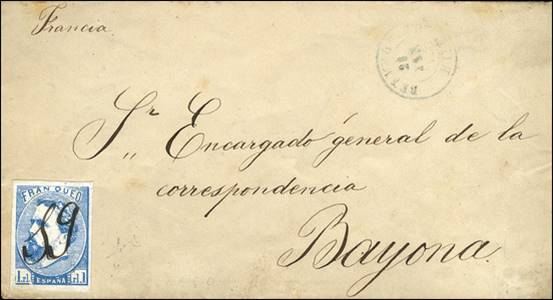 Francia
Sr. Encargado general de la
correspondencia
Bayona.
FRANQUEO
1 rl. 1 rl.
ESPAÑA